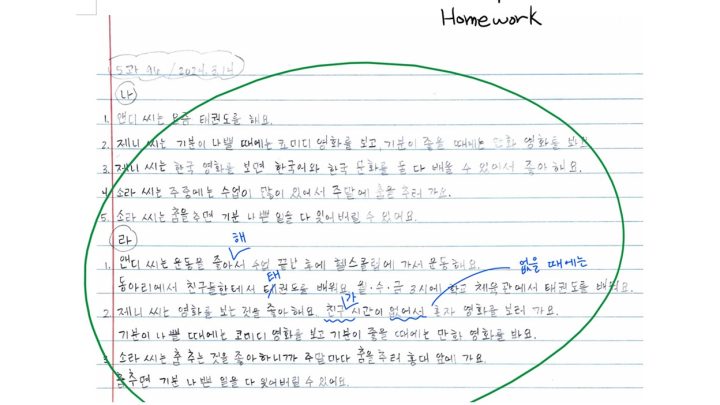 Homework
5과 94 / 2024.3.14
나
1. 앤디 씨는 요즘 태권도를 해요.
2. 제니 씨는 기분이 나쁠 때에는 코미디 영화를 보고, 기분이 좋을 때에는 만화 영화를 봐요.
3. 제니 씨는 한국 영화를 보면 한국어와 한국 문화를 둘 다 배울 수 있어서 좋아해요.
4. 소라 씨는 주중에는 수업이 많이 있어서 주말에 춤을 추러 가요.
5. 소라 씨는 춤을 추면 기분 나쁜 일을 다 잊어버릴 수 있어요.
라
해
1. 앤디 씨는 운동을 좋아서 수업 끝난 후에 헬스클럽에 가서 운동해요.
없을 때에는
태
동아리에서 친구들한테서 태권도를 배워요. 월·수·금 3시에 학교 체육관에서 태권도를 배워요.
가
2. 제니 씨는 영화를 보는 것을 좋아해요. 친구 시간이 없어서 혼자 영화를 보러 가요.
기분이 나쁠 때에는 코미디 영화를 보고 기분이 좋을 때에는 만화 영화를 봐요.
3. 소라 씨는 춤 추는 것을 좋아하니까 주말마다 춤을 추러 홍대 앞에 가요.
춤추면 기분 나쁜 일을 다 잊어버릴 수 있어요.